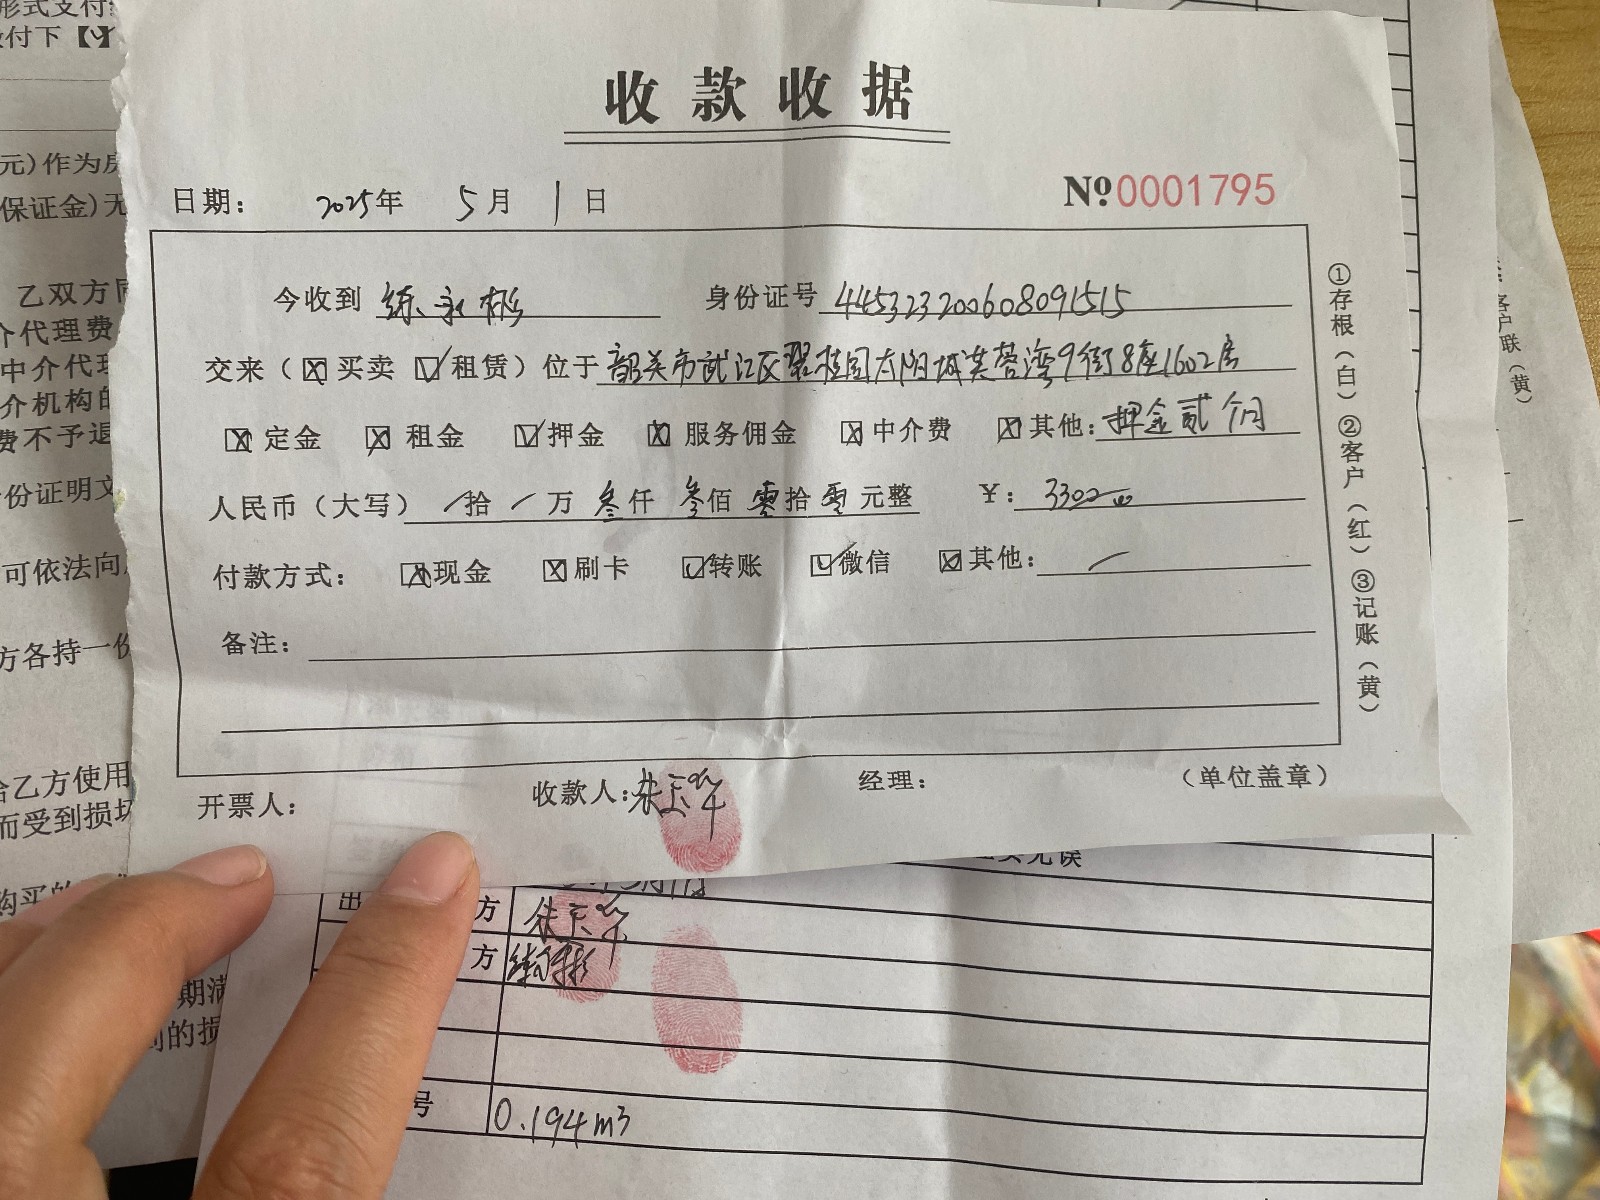 形式支付
付下【
收款收据
元)作为房
保证金)无
日期： 2025年 5月 1日
№0001795
今收到 练永彬 身份证号 445323200608091515
乙双方同
介代理费
交来（☒买卖 ☑租赁）位于 韶关市武江区碧桂园太阳城芙蓉湾9街8座1602房
中介代理
介机构的
☒定金 ☒租金 ☑押金 ☒服务佣金 ☒中介费 ☒其他：押金贰个月
费不予退
份证明文
人民币（大写） / 拾 / 万 叁仟 叁佰 零拾 零元整 ¥：3300
可依法向
付款方式： ☒现金 ☒刷卡 ☑转账 ☑微信 ☒其他： /
方各持一份
备注：
①存根（白）②客户（红）③记账（黄）
客户联（黄）
给乙方使用
而受到损坏
开票人： 收款人： 经理： （单位盖章）
无误
购买的
出 方
方
期满
的损
号 0.194m3